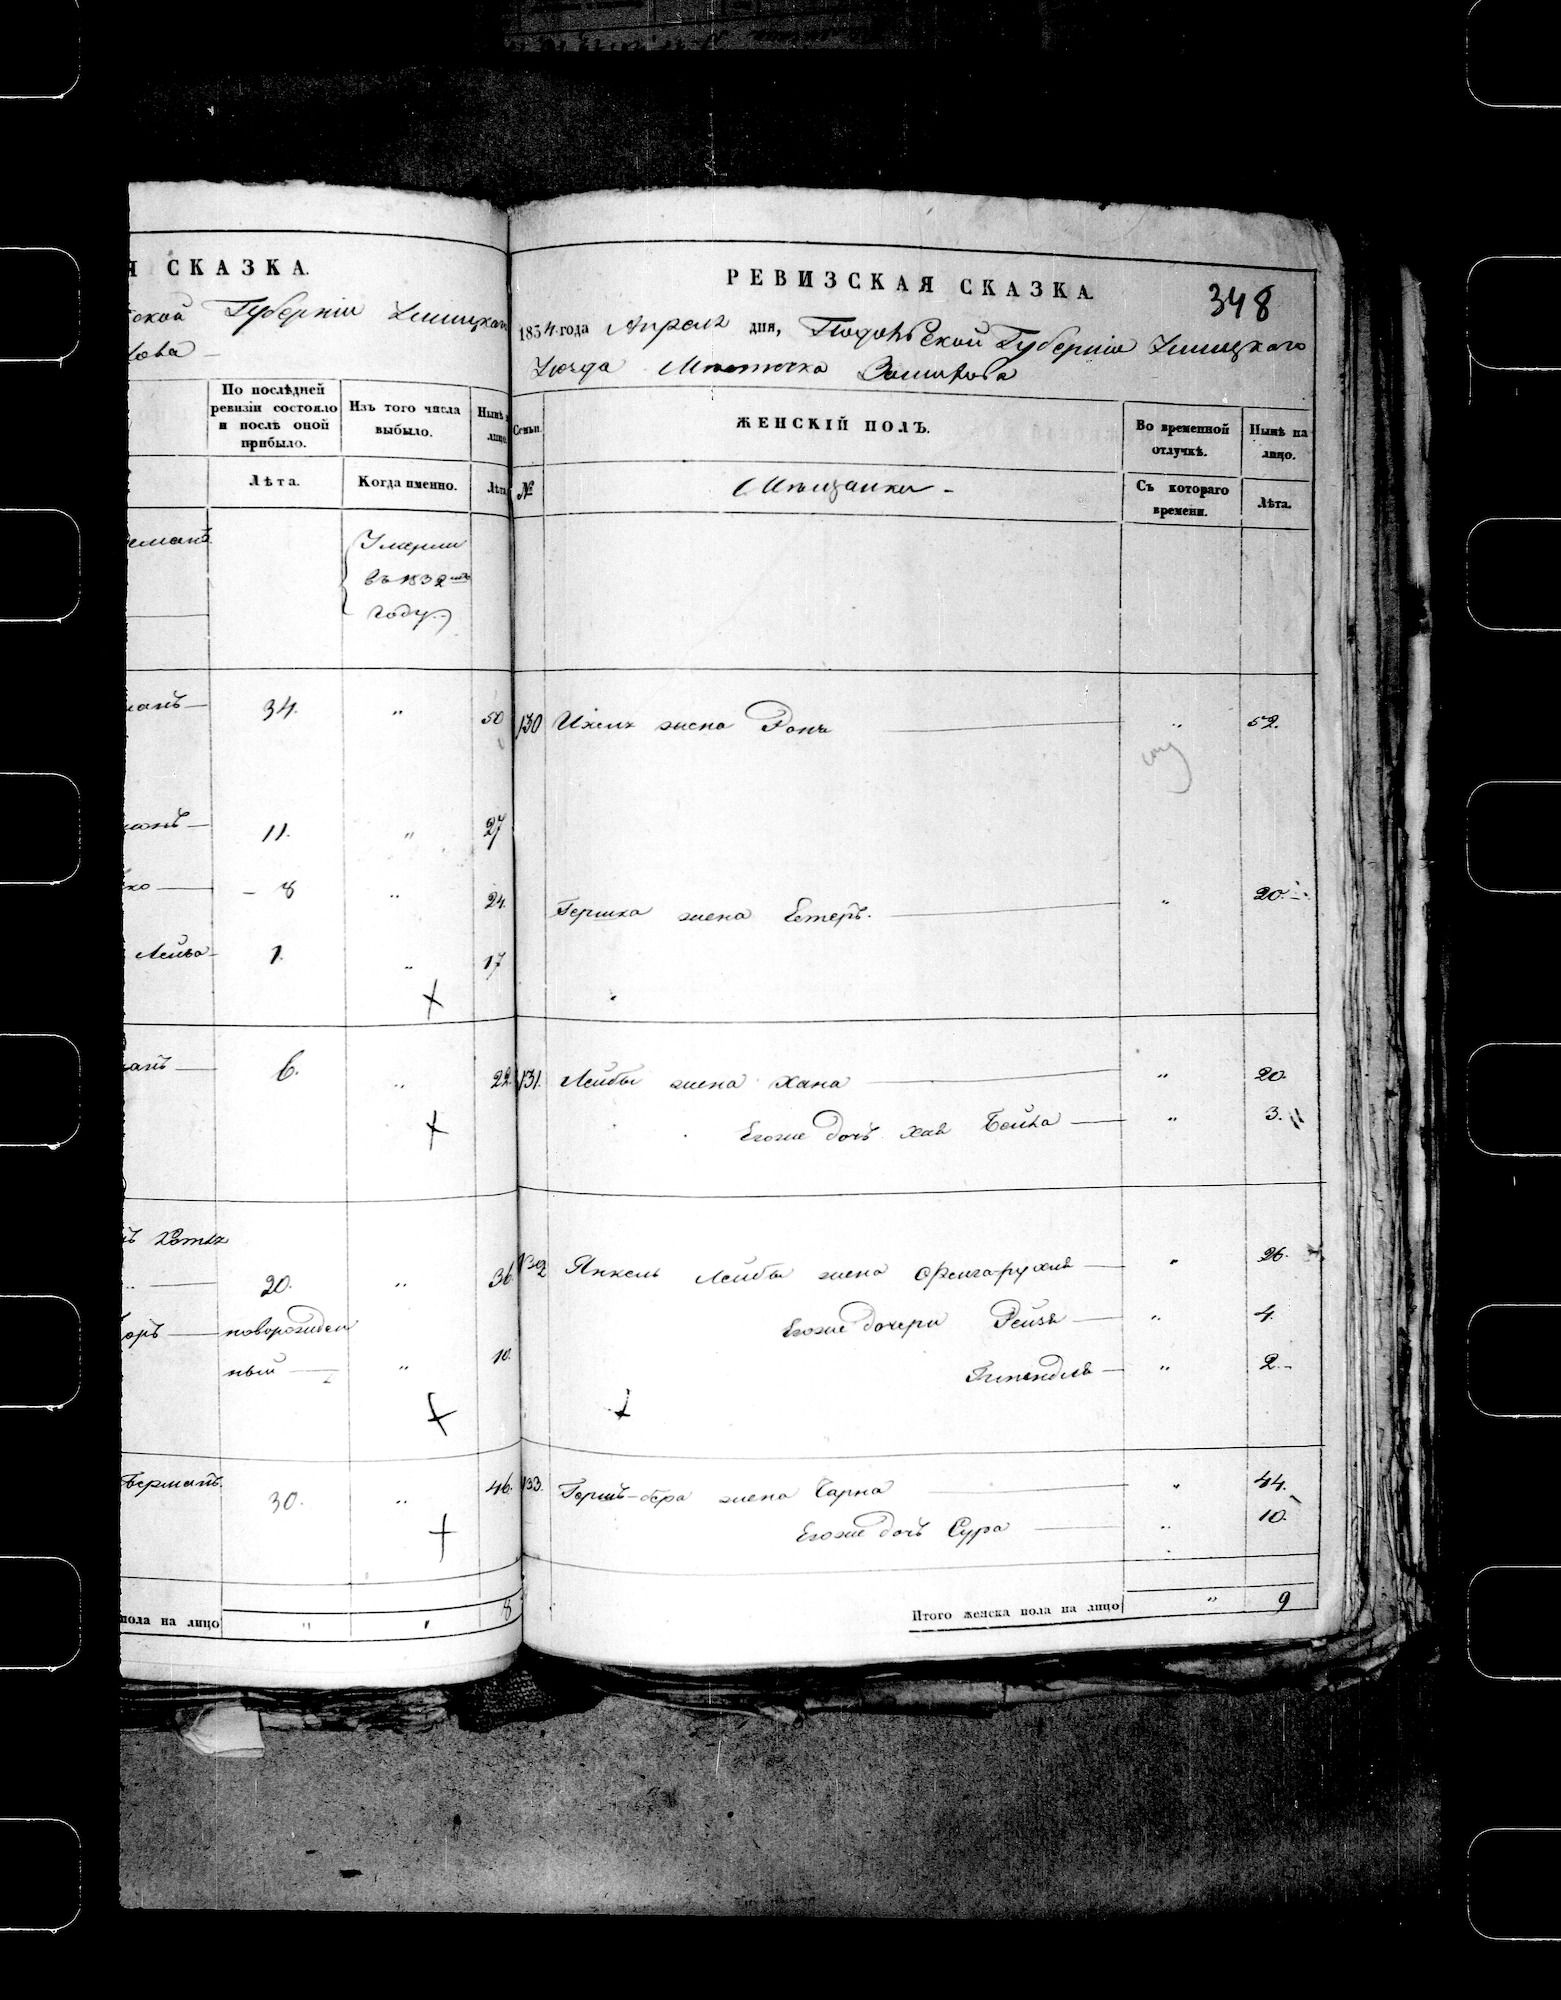 Я СКАЗКА.
ской Губерніи Ушицкаго
кова
По послѣдней ревизіи состояло и послѣ оной прибыло.
Изъ того числа выбыло.
Нынѣ на лицо.
Лѣта.
Когда именно.
Лѣта
Умерли
въ 1832мъ
году
34. " 50
11. " 27
8 " 24.
Лейба 1. " 17
6. " 22.
20. " 36.
новорожден
ный " 10.
Берманъ. 30. " 46.
пола на лицо " " 8
РЕВИЗСКАЯ СКАЗКА.
348
1834 года Апреля дня, Подольской Губерніи Ушицкаго
Уезда Местечка Замихова
Семьи.
ЖЕНСКІЙ ПОЛЪ.
Во временной отлучкѣ.
Нынѣ на лицо.
№
Мещанки
Съ котораго времени.
Лѣта.
130 Ихеля жена Роня " 52.
Гершка жена Естеръ. " 20.
131. Лейбы жена Хана " 20.
Егоже дочь Хая Бейла " 3.
132 Янкель Лейбы жена Фейга-рухля " 26.
Егоже дочери Рейзя " 4.
" 2.
133. Гершъ-бера жена Чарна " 44.
Егоже дочь Сура " 10.
Итого женска пола на лицо " 9